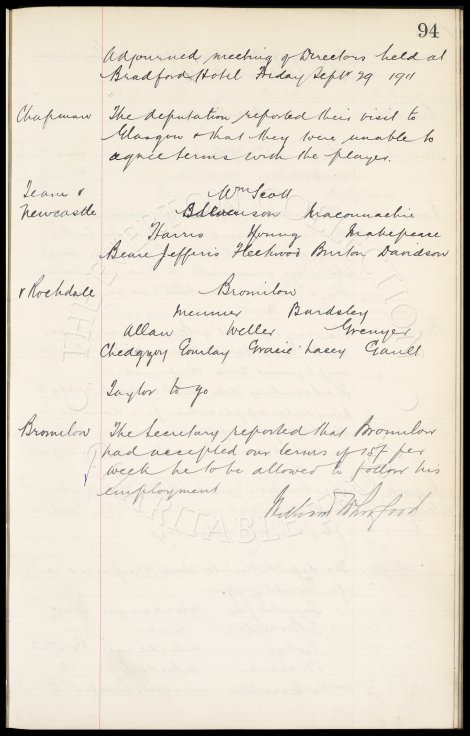 94
Adjourned meeting of Directors held at
Bradford Hotel Friday Septr 29 1911
Chapman The deputation reported their visit to
Glasgow & that they were unable to
agree terms with the player.
Team v Wm Scott
Newcastle Stevenson Maconnachie
Harris Young Makepeace
Beare Jefferis Fleetwood Burton Davidson
v Rochdale Bromilow
Meunier Bardsley
Allan Weller Grenyer
Chedgzoy Gourlay Gracie Lacey Gault
Taylor to go
Bromilow The Secretary reported that Bromilow
had accepted our terms of 15/ per
week he to be allowed to follow his
employment
THE EVERTON COLLECTION
CHARITABLE